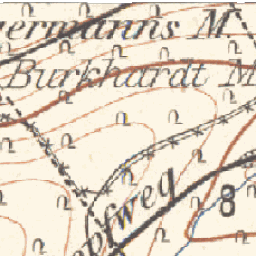 germanns M
Burkhardt M
pfweg
8